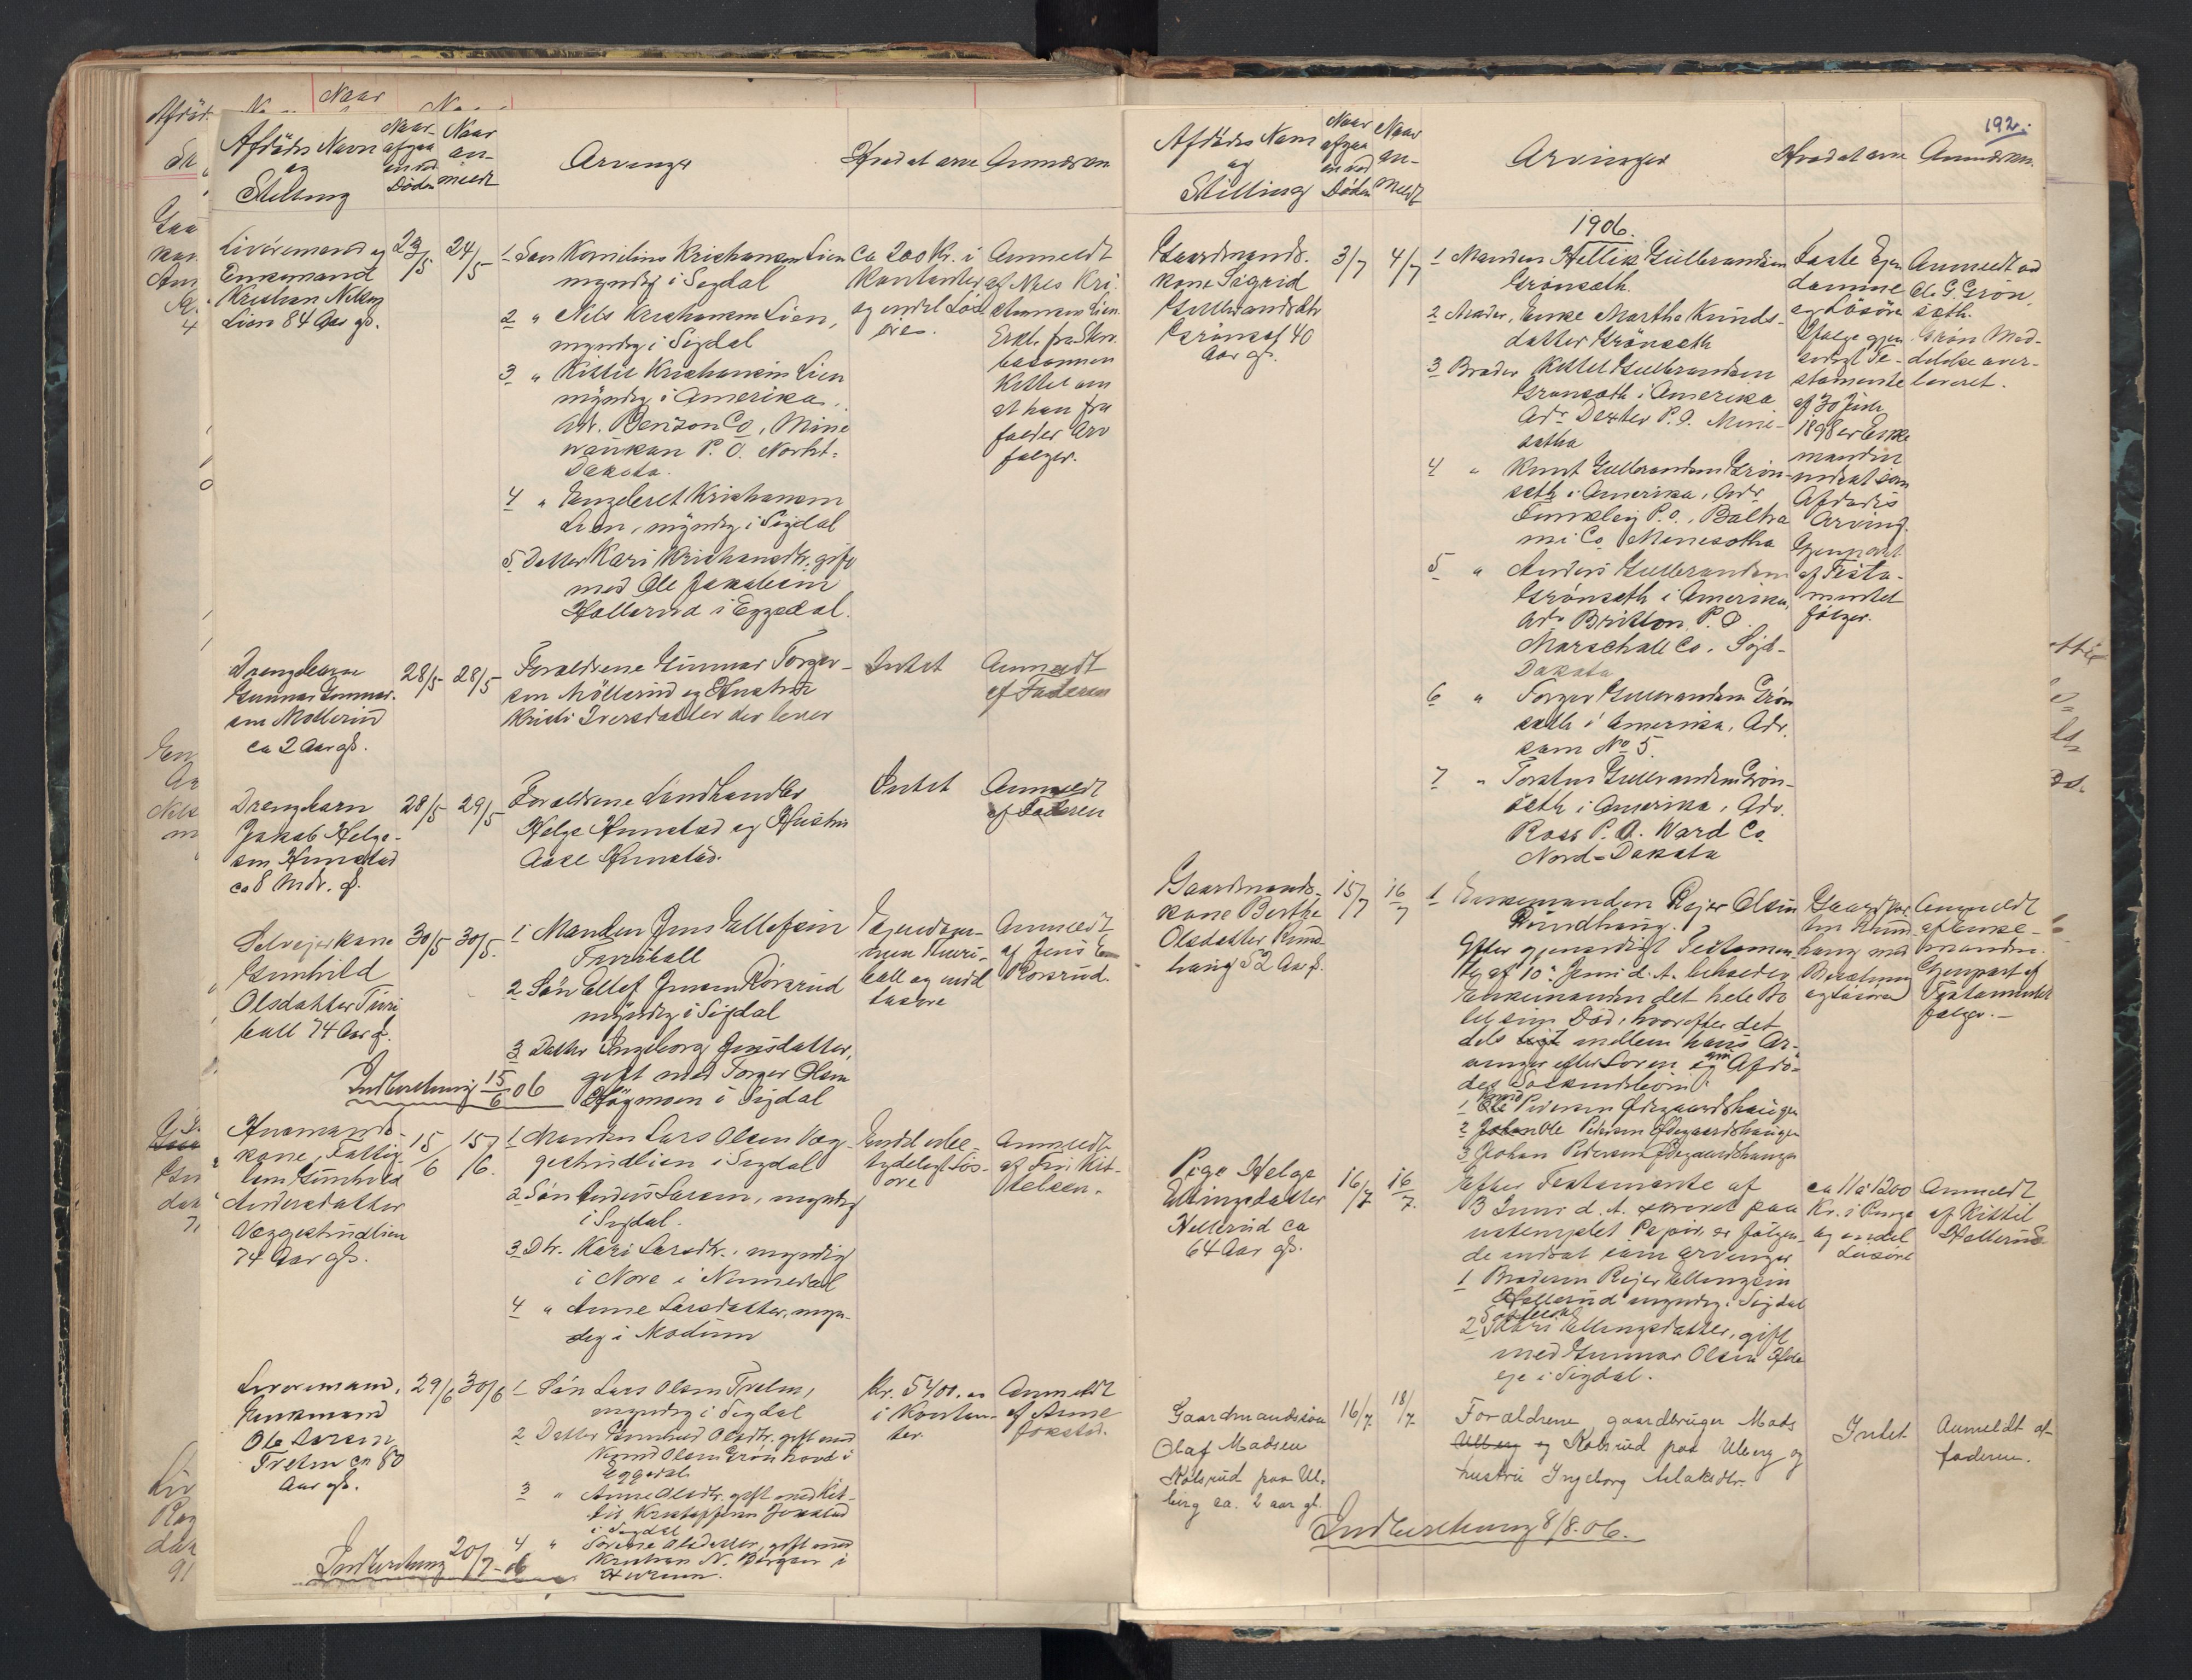 Afdødes Navn
og
Stilling
Naar
afgaa
en ved
Døden
Naar
an-
meldt
Arvinger
Hvad at arve
Anmærkn
Livøremand og
Enkemand
Kristian Nilsen
Lien 84 Aar gl.
23/5
24/5
1 Søn Kornelius Kristiansen Lien
myndig i Sigdal
2 " Nils Kristiansen Lien,
myndig i Sigdal
3 " Kittil Kristiansen Lien
myndig i Amerika.
Adr. Benson Co, Mine
waukan P. O. Norht-
Dakota.
4 " Engebret Kristiansen
Lien, myndig i Sigdal
5 Datter Kari Kristiansdtr. gift
med Ole Jakobsen
Hollerud i Eggedal.
Ca 200 Kr. i
Kontanter
og endel Løs
øre.
Anmeldt
af Nils Kri-
stiansen Lien.
Erkl. fra
Kittel om
at han fra
falder Arv
følger.
Drengebarn
Gunnar Gunnar-
sen Møllerud
ca 2 Aar gl.
28/5
28/5
Forældrene Gunnar Torger-
sen Møllerud og Hustru
Kristi Iversdatter der lever
Intet
Anmeldt
af Faderen
Drengebarn
Jakob Helge-
sen Hunstad
ca 8 Mdr. gl.
28/5
29/5
Forældrene Landhandler
Helge Hunstad og Hustru
Aase Hunstad.
Intet
Anmeldt
af Faderen
Selveierkone
Gunhild
Olsdatter Turi
ball 74 Aar gl.
30/5
30/5.
1 Manden Jens Ellefsen
Turiball
2 Søn Ellef Jensen Korsrud
myndig i Sigdal
3 Datter Ingeborg Jensdatter,
gift med Torger Olsen
Høgmoen i Sigdal
Eiendom-
men Turi-
ball og endel
Løsøre
Anmeldt
af Jens
Korsrud.
Indberetning 15/6 06
Husmands-
kone, Fattig-
lem Gunhild
Andersdatter
Væggestindlien
74 Aar gl.
15/6
15/6.
1 Manden Lars Olsen Væg-
gestindlien i Sigdal
2 Søn Anders Larsen, myndig
i Sigdal.
3 Dtr. Kari Larsdtr. myndig
i Nore i Numedal
4 " Anne Larsdatter, myn-
dig i Modum
Endel ube-
tydeligt Løs-
øre
Anmeldt
af Kit-
telsen.
Livøremand,
Enkemand
Ole Larsen
Tretin ca 80
Aar gl.
29/6
30/6
1 Søn Lars Olsen Tretin,
myndig i Sigdal
2 Datter Gunhild Olsdtr. gift med
Knud Olsen Grønhovd i
Eggedal
3 " Anne Olsdtr. gift med Kit-
til Kristoffersen Jokstad
i Sigdal
4 " Torine Olsdatter, gift med
Kristian N. Berger i
Hurum.
Kr. 5400.00
i Kontan-
ter.
Anmeldt
af Anne
Jokstad.
Indberetning 20/7-06
192.
Afdødes Navn
og
Stilling
Naar
afgaa
en ved
Døden
Naar
an-
meldt
Arvinger
Hvad at arve
Anmærkn.
1906.
Gaardmands-
kone Sigrid
Gulbrandsdtr
Grønset 40
Aar gl.
3/7
4/7
1 Manden Hellik Gulbrandsen
Grønseth.
2 Moder, Enke Martha Knuds-
datter Grønseth
3 Broder Kittel Gulbrandsen
Grønseth i Amerika
Adr. Dexter P. O. Mine-
sotha
4 " Knut Gulbrandsen Grøn-
seth i Amerika, Adr.
Funkley P. O., Baltra
mi Co Menesotha
5 " Anders Gulbrandsen
Grønseth i Amerika,
Adr Britton P. O.
Marschall Co. Syd-
Dakota
6 " Torger Gulbrandsen Grøn
seth i Amerika, Adr.
som No 5.
7 " Torsten Gulbrandsen Grøn-
seth i Amerika, Adr.
Ross P. O. Ward Co
Nord-Dakota
Faste Eien
domme
og Løsøre
Ifølge gjen
sidigt Te-
stamente
af 30 Juli
1898 er Enke
manden
indsat som
Afdødes
Arving.
Gjenpart
af Testa-
mentet
følger.
Anmeldt ved
G. Grøn-
seth.
Grøn Med-
delelse over-
leveret.
Gaardmands-
kone Berthe
Olsdatter Rund
haug 52 Aar gl.
15/7
16/7
1 Enkemanden Rejer Olsen
Rundhaug.
Efter gjensidigt Testamen-
te af 10 Juni d. A. beholder
Enkemanden det hele Bo
til sin Død, hvorefter det
deles ligt mellem hans Ar-
vinger efter Loven og Afdø-
des Søskendebørn:
1 Knud Pedersen Ødegaardshaugen
2 Ole Pedersen Ødegaardshaugen
3 Johan Pedersen Ødegaardshaugen
Gaardpar
ten Rund-
haug med
Besætning
og Løsøre
Anmeldt
af Enke-
manden.
Gjenpart af
Testamentet
følger.-
Pige Helge
Ellingsdatter
Hellerud ca
64 Aar gl.
16/7
16/7.
Efter Testamente af
3 Juni d. A. skrevet paa
ustemplet Papir, er følgen-
de indsat som Arvinger
1 Broderen Rejer Ellingsen
Hellerud myndig i Sigdal
2 Søsteren Ellingsdatter, gift
med Gunnar Olsen
eje i Sigdal.
ca 11 à 1200
Kr. i Penge
og endel
Løsøre
Anmeldt
af Kittil
Hellerud
Gaardmandssøn
Olaf Madsen
Kolsrud paa Ul-
berg ca. 2 aar gl.
16/7
18/7
Forældrene gaardbruger Mads
Ulberg og Kolsrud paa Ulberg og
hustru Ingeborg Aslaksdtr.
Intet
Anmeldt af
faderen.
Indberetning 8/8. 06.